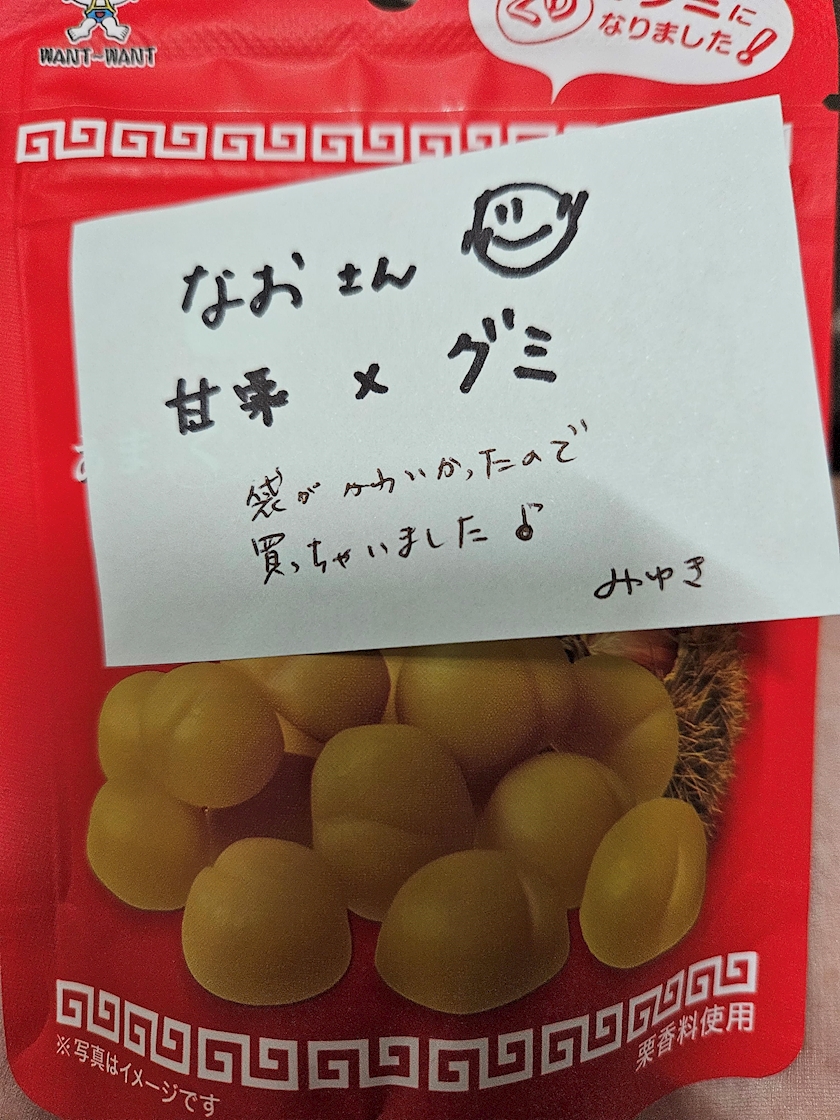 WANT-WANT
グミに
なりました!
なおさん
甘栗 × グミ
袋がかわいかったので
買っちゃいました♪
みゆき
栗香料使用
※写真はイメージです